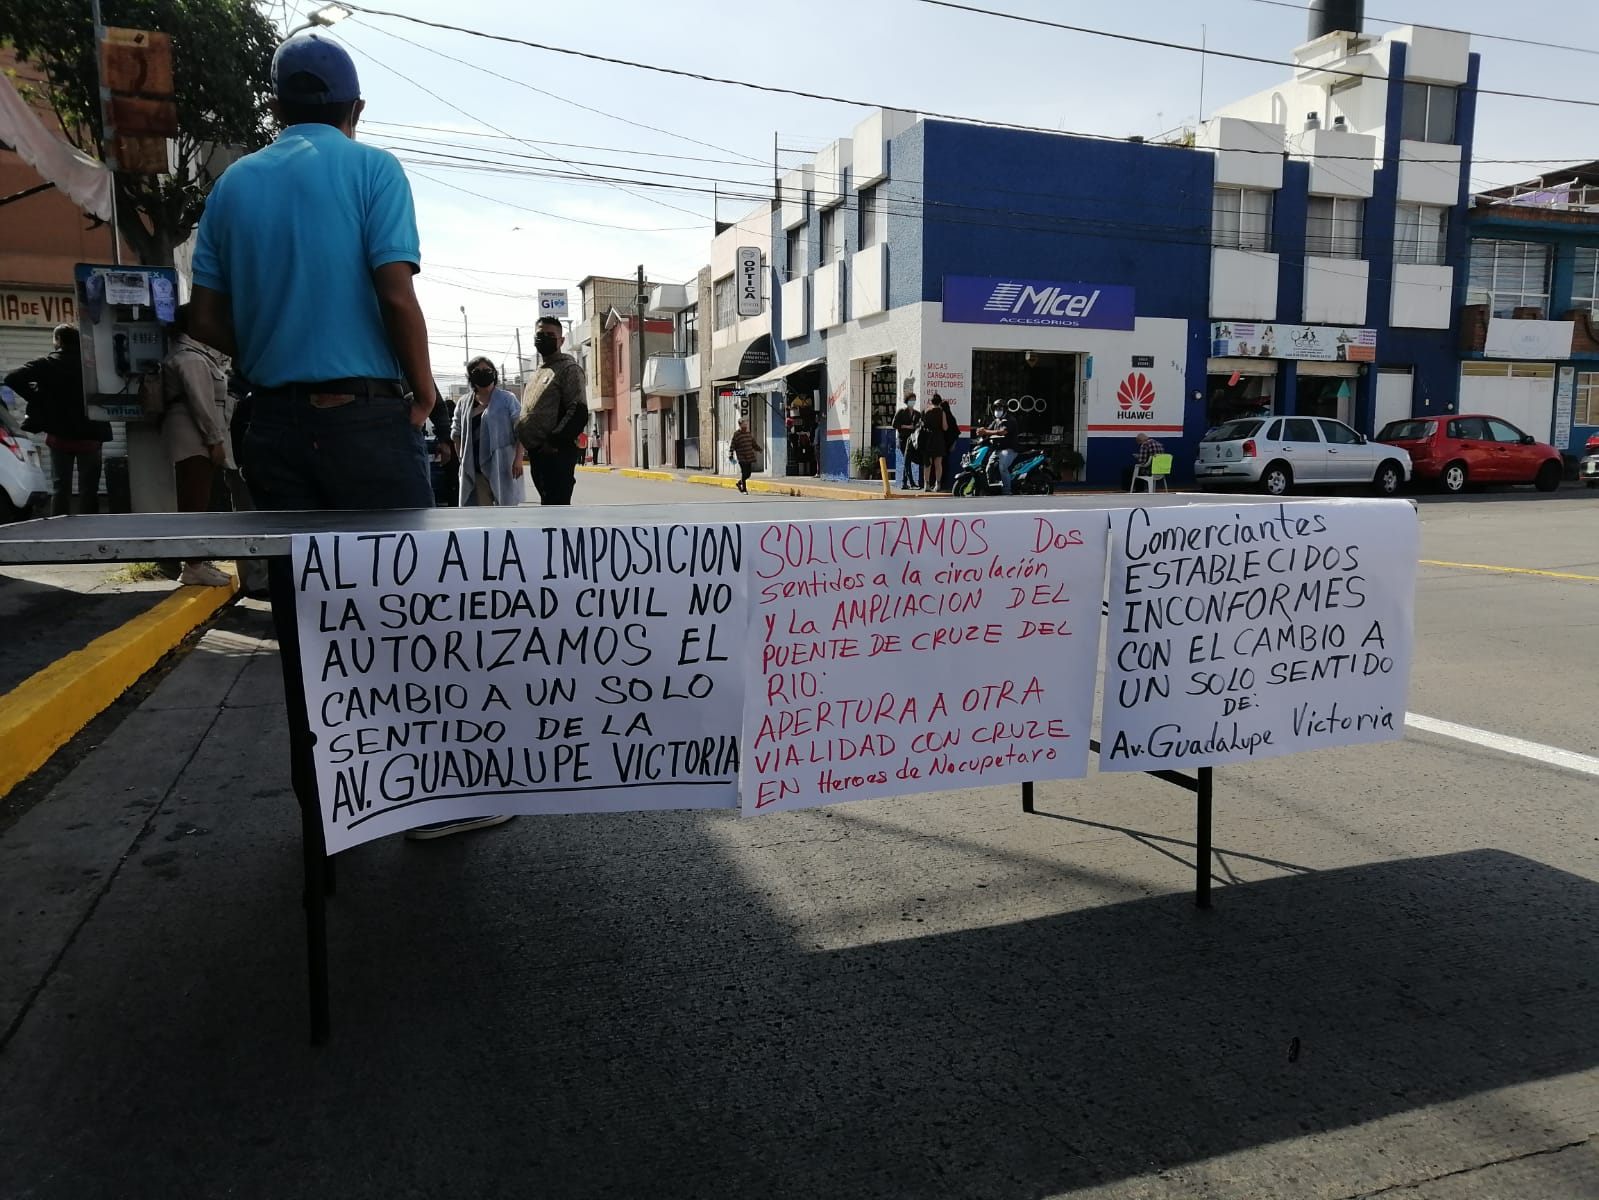 ALTO A LA IMPOSICION
LA SOCIEDAD CIVIL NO
AUTORIZAMOS EL
CAMBIO A UN SOLO
SENTIDO DE LA
AV. GUADALUPE VICTORIA
SOLICITAMOS Dos
sentidos a la circulación
y La AMPLIACION DEL
PUENTE DE CRUZE DEL
RIO:
APERTURA A OTRA
VIALIDAD CON CRUZE
EN Heroes de Nocupetaro
Comerciantes
ESTABLECIDOS
INCONFORMES
CON EL CAMBIO A
UN SOLO SENTIDO
DE:
Av. Guadalupe Victoria
MIcel
ACCESORIOS
MICAS
CARGADORES
PROTECTORES
USB
HUAWEI
OPTICA
Gi
IA DE VIA